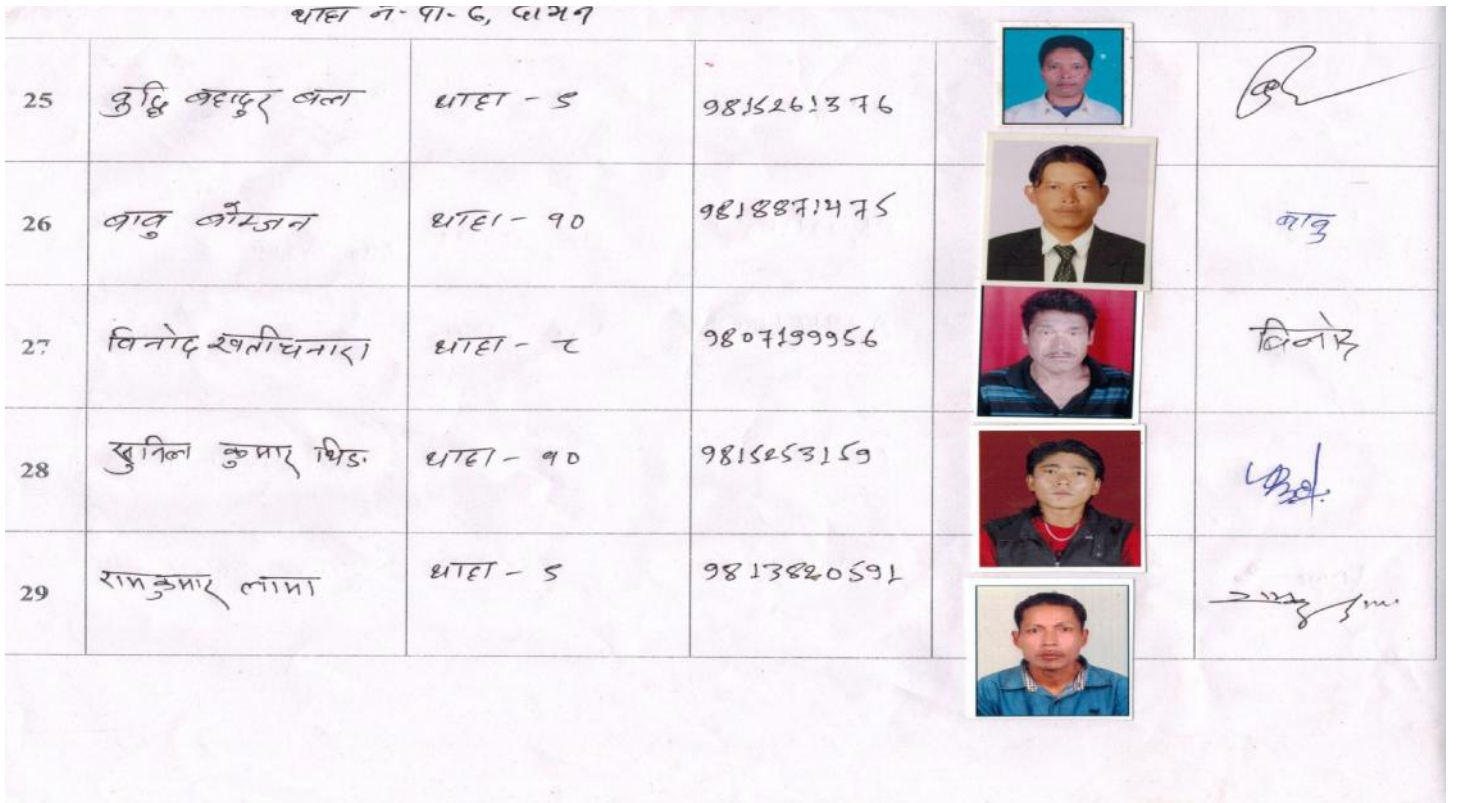 थाहा न-पा-६, दामन
25 बुद्धि बहादुर वला थाहा - ९ 9815261376
26 बाबु बोम्जन थाहा - १० 9818871475 बाबु
27 विनोद थाहा - 9807199956 विनोद
28 सुनिल कुमार थिङ थाहा - १० 9815253159
29 रामकुमार लामा थाहा - ९ 9813820591